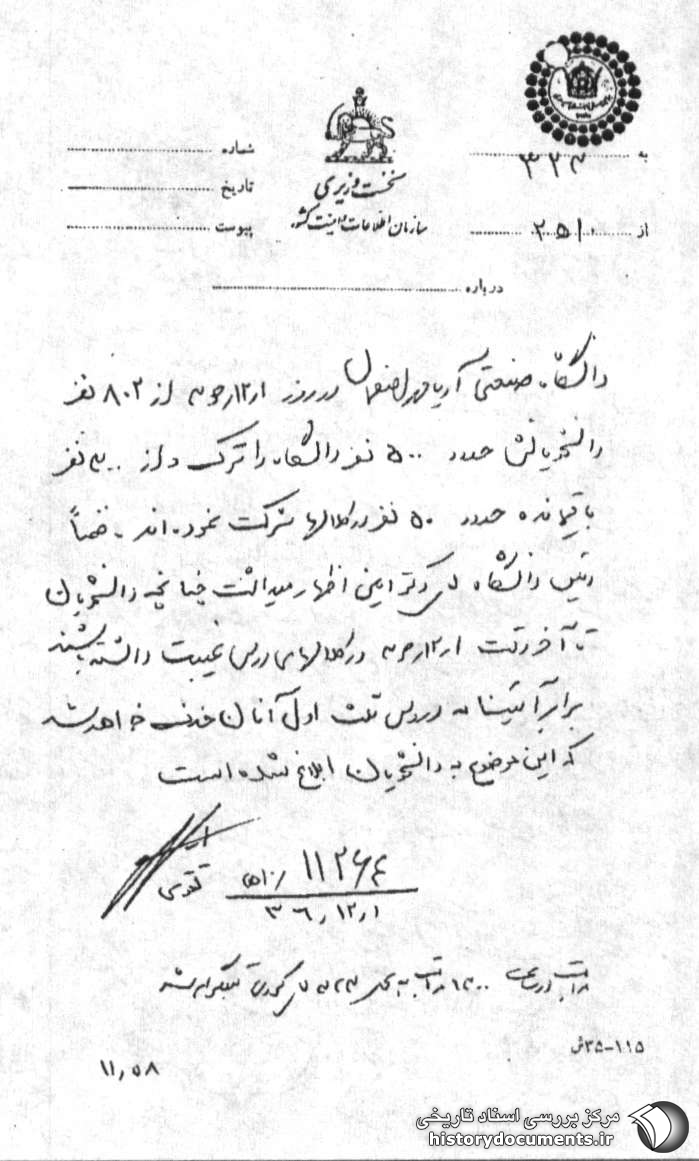 شماره
تاریخ
پیوست
نخست وزیری
سازمان اطلاعات و امنیت کشور
به ۳۲۳
از ۲۵ ۱۰
درباره
دانشگاه صنعتی آریامهر اصفهان در روز ۱۲/۱ جاری از ۸۰۲ نفر
دانشجویانش حدود ۵۰۰ نفر دانشگاه را ترک و از ۳۰۰ نفر
باقیمانده حدود ۵۰ نفر در کلاسها شرکت نموده اند. ضمناً
رئیس دانشگاه دکتر امینی اظهار میداشت چنانچه دانشجویان
تا آخر وقت ۱۲/۱ در کلاسهای درس غیبت داشته باشند
برابر آئیننامه دروس ثلث اول آنان حذف خواهد شد
که این موضوع به دانشجویان ابلاغ شده است
تقوی
۱۱۲۶۴
۳۶/۱۲/۱
مراتب ساعت ۱۳۰۰
۱۱۵-۳۵ش
۱۱/۵۸
مرکز بررسی اسناد تاریخی
historydocuments.ir